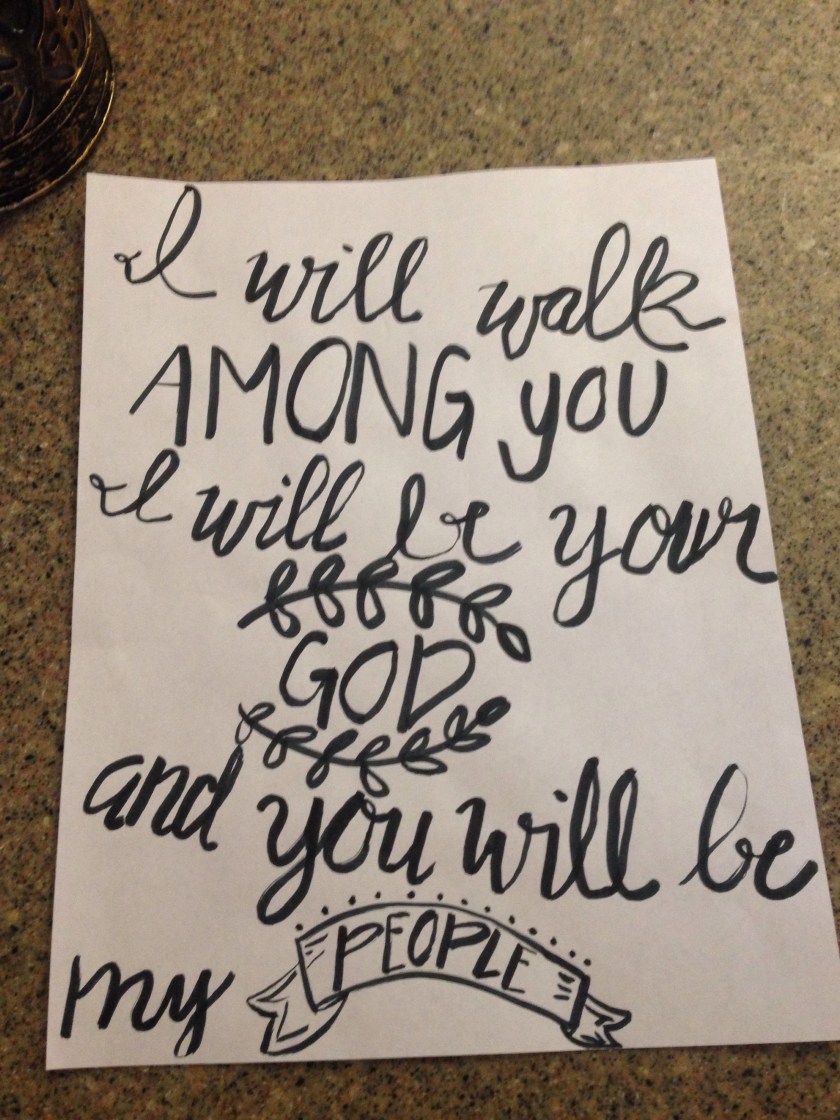 I will walk
AMONG you
I will be your
GOD
and you will be
my PEOPLE